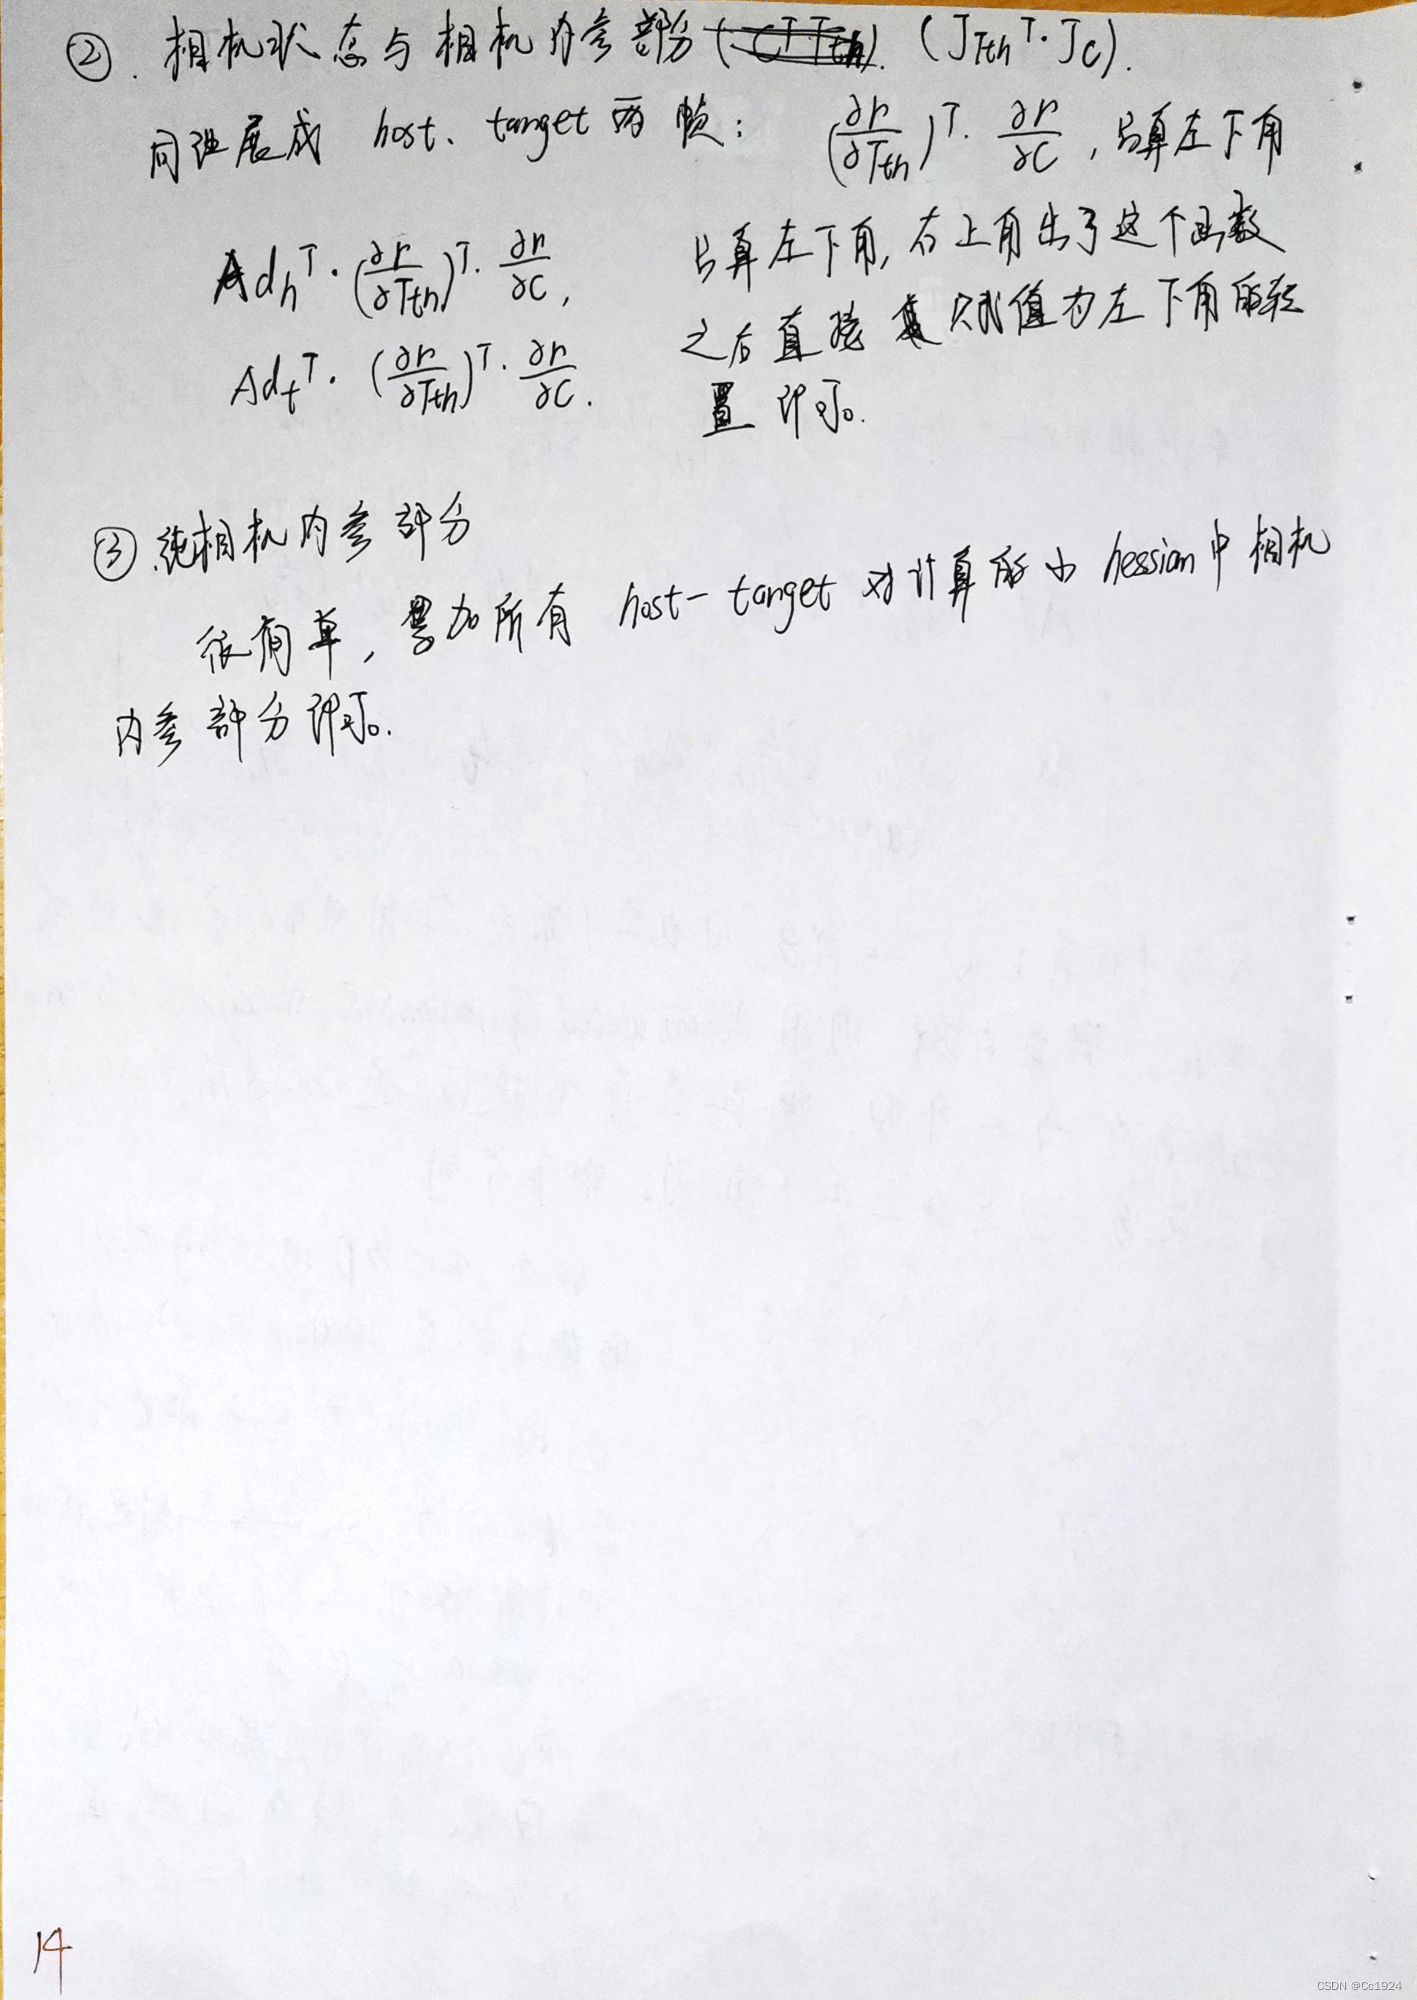 ②. 相机状态与相机内参部分 (J_Tth^T · J_C).
同理展成 host、target 两帧: (∂r/∂T_th)^T · ∂r/∂C, 只算左下角
Ad_h^T · (∂r/∂T_th)^T · ∂r/∂C,
Ad_t^T · (∂r/∂T_th)^T · ∂r/∂C.
只算左下角, 右上角出了这个函数
之后直接 赋值为左下角的转
置即可。
③.纯相机内参部分
很简单, 累加所有 host-target 对计算的小 hessian中相机
内参部分即可。
14
CSDN @Cc1924